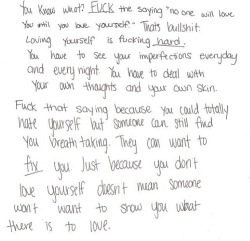 You know what? FUCK the saying "no one will love
you until you love yourself" - Thats bullshit.
Loving yourself is fucking hard.
You have to see your imperfections everyday
and every night. You have to deal with
your own thoughts and your own skin.
Fuck that saying because you could totally
hate yourself but someone can still find
you breathtaking. They can want to
fix you. Just because you don't
love yourself doesn't mean someone
won't want to show you what
there is to love.